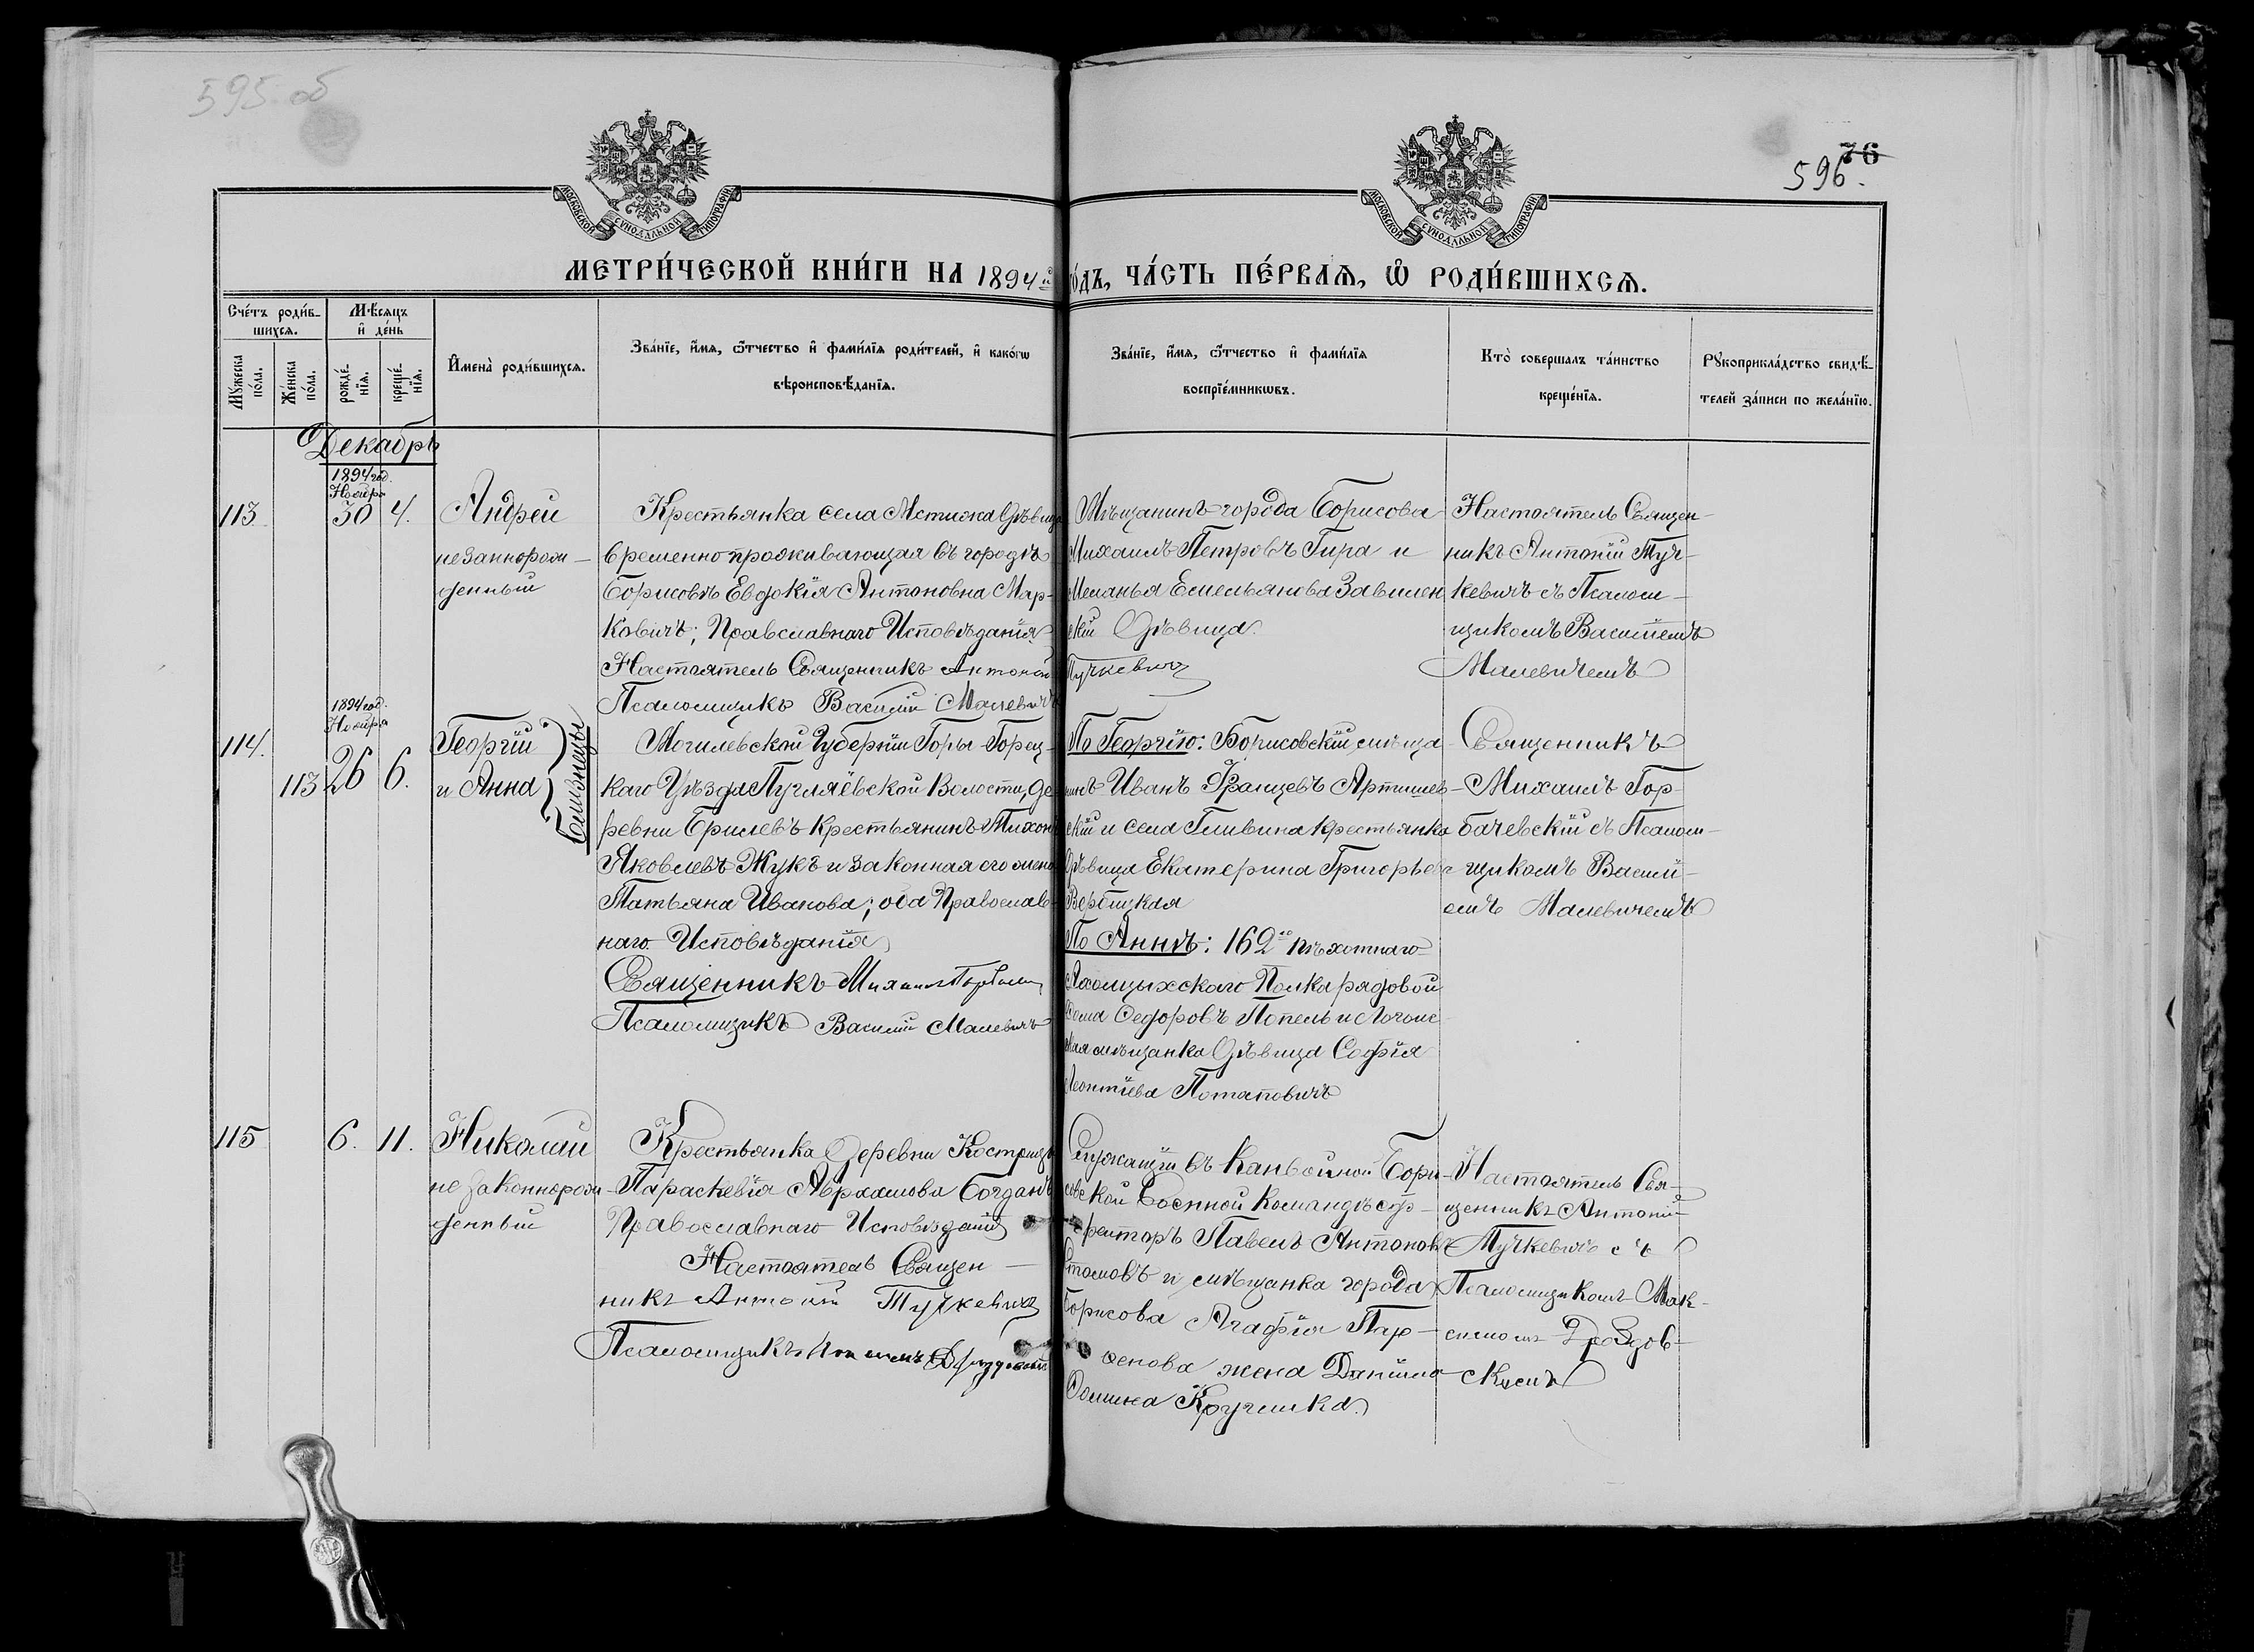 595 об
76
596.
МОСКОВСКОЙ СѴНОДАЛЬНОЙ ТИПОГРАФІИ
МОСКОВСКОЙ СѴНОДАЛЬНОЙ ТИПОГРАФІИ
МЕТРИ́ЧЕСКОЙ КНИ́ГИ НА 1894й го́дъ, ЧА́СТЬ ПЕ́РВАѦ, Ѽ РОДИ́ВШИХСѦ.
Сче́тъ роди́в-
шихсѧ.
Мꙋ́жеска
по́ла.
Же́нска
по́ла.
Мѣ́сѧцъ
и҆ де́нь
рожде́-
нїѧ.
креще́-
нїѧ.
И҆мена̀ роди́вшихсѧ.
Зва́нїе, и҆́мѧ, ѻ҆́тчество и҆ фами́лїѧ роди́телей, и҆ како́гѡ
вѣроисповѣ́данїѧ.
Зва́нїе, и҆́мѧ, ѻ҆́тчество и҆ фами́лїѧ
воспрїе́мникѡвъ.
Кто̀ соверша́лъ та́инство
креще́нїѧ.
Рꙋкоприкла́дство свидѣ́-
телей за́писи по жела́нїю.
Декабрь
1894 год.
Ноября
113 30 4.
Андрей
незаннорож-
денный
Крестьянка села Мстижа Дѣвица
временно проживающая въ городѣ
Борисовѣ Евдокія Антоновна Мар-
ковичъ; Православнаго Исповѣданія
Настоятель Священникъ Антоній Тучкевичъ
Псаломщикъ Василій Малевичъ
Мѣщанинъ города Борисова
Михаилъ Петровъ Гира и
Меланья Емельянова Завилен
скій Дѣвица.
Настоятель Священ-
никъ Антоній Туч-
кевичъ съ Псалом-
щикомъ Василіемъ
Малевичемъ
1894 год.
Ноября
114. 113 26 6.
Георгій
и Анна
близнецы
Могилевской Губерніи Горы-Горец-
каго Уѣзда Пугляёвской Волости, де-
ревни Брилевъ крестьянинъ Тихонъ
Яковлевъ Жукъ и законная его жена
Татьяна Иванова; оба Православ-
наго Исповѣданія
Священникъ Михаилъ Горбачевскій
Псаломщикъ Василій Малевичъ
По Георгію: Борисовскій мѣща-
нинъ Иванъ Францевъ Артишев-
скій и села Гливина крестьянка
Дѣвица Екатерина Григорьева
Вербицкая
По Аннѣ: 162го пѣхотнаго
Ахалцыхскаго Полка рядовой
Ѳома Ѳедоровъ Попель и Логойс
кая мѣщанка Дѣвица Софія
Леонтіева Потаповичъ
Священникъ
Михаилъ Гор-
бачевскій съ Псалом-
щикомъ Василі-
емъ Малевичемъ
115 6. 11.
Николай
не законнорож-
денный
Крестьянка Деревни Кострицъ
Параскевія Авраамова Богданъ
Православнаго Исповѣданія
Настоятель Священ-
никъ Антоній Тучкевичъ
Псаломщикъ Дроздовскій
Служащій въ Канвойной Бори-
совской Военной Командѣ еф-
рейторъ Павелъ Антоновъ
и мѣщанка города
Борисова Агафія Пар-
ѳенова жена Даніила
Ѳомина Кручинка.
Настоятель Свя-
щенникъ Антоній
Тучкевичъ съ
Псаломщикомъ Мак-
симомъ Дроздов-
скимъ